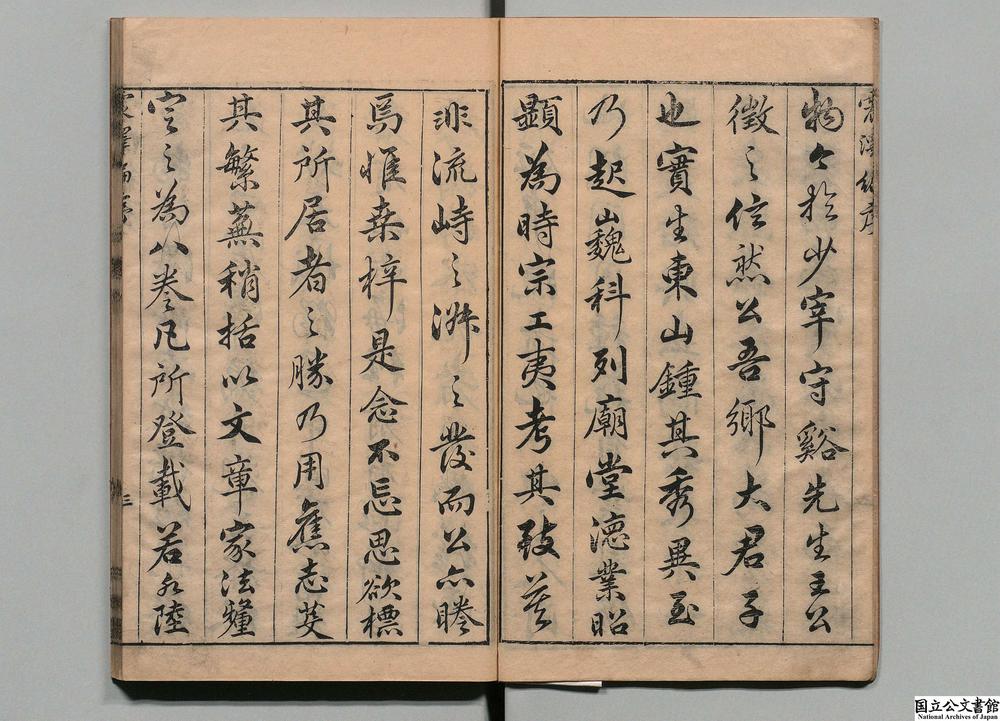 震澤編序
物今於少宰守谿先生王公
徵之信然公吾鄉大君子
也實生東山鍾其秀異至
乃起巍科列廟堂德業昭
顯為時宗工夷考其致茲
非流峙之淋之發而公亦睠
焉惟桑梓是念不忘思欲標
其所居者之勝乃用舊志芟
其繁蕪稍括以文章家法釐
定之為八卷凡所登載若水陸
震澤編序
三
国立公文書館
National Archives of Japan